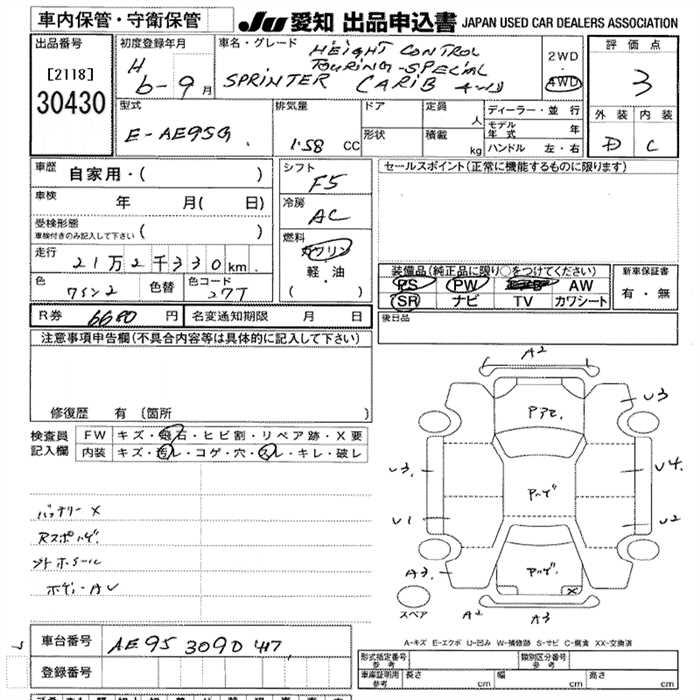 車内保管・守衛保管
JU 愛知 出品申込書 JAPAN USED CAR DEALERS ASSOCIATION
出品番号
[2118]
30430
初度登録年月
H
6-9月
車名・グレード
HEIGHT CONTROL
TOURING-SPECIAL
SPRINTER CARIB 4WD
2WD
4WD
評価点
3
外装 内装
D C
型式
E-AE95G
排気量
1.58 CC
ドア
定員
人
形状
積載
kg
ディーラー・並行
モデル年式 年
ハンドル 左・右
車歴 自家用・( )
車検 年 月( 日)
受検形態
車検付きのみ記入して下さい ( )
走行 21万2千330km
色 ワイン2
色替
色コード
3T7
シフト
F5
冷房
AC
燃料
ガソリン
軽・油
( )
セールスポイント(正常に機能するものに限ります)
装備品(純正品に限り○をつけてください)
PS PW AW
SR ナビ TV カワシート
新車保証書
有・無
後日品
R券 6680 円
名変通知期限 月 日
注意事項申告欄(不具合内容等は具体的に記入して下さい)
修復歴 有 [箇所 ]
検査員記入欄
FW キズ・飛石・ヒビ割・リペア跡・X要
内装 キズ・汚レ・コゲ・穴・スレ・キレ・破レ
バッテリー X
Rスポハゲ
ボディ-AU
A2
U3
Pアセ
U3
U4
Pハゲ
U1
U2
A3
Pハゲ
X
A2
A3
スペア
A-キズ E-エクボ U-凹み W-補修跡 S-サビ C-腐食 XX-交換済
車台番号 AE95 3090 417
登録番号
形式指定番号
参考
類別区分番号
参考
車庫証明用
参考
長さ cm 幅 cm 高さ cm